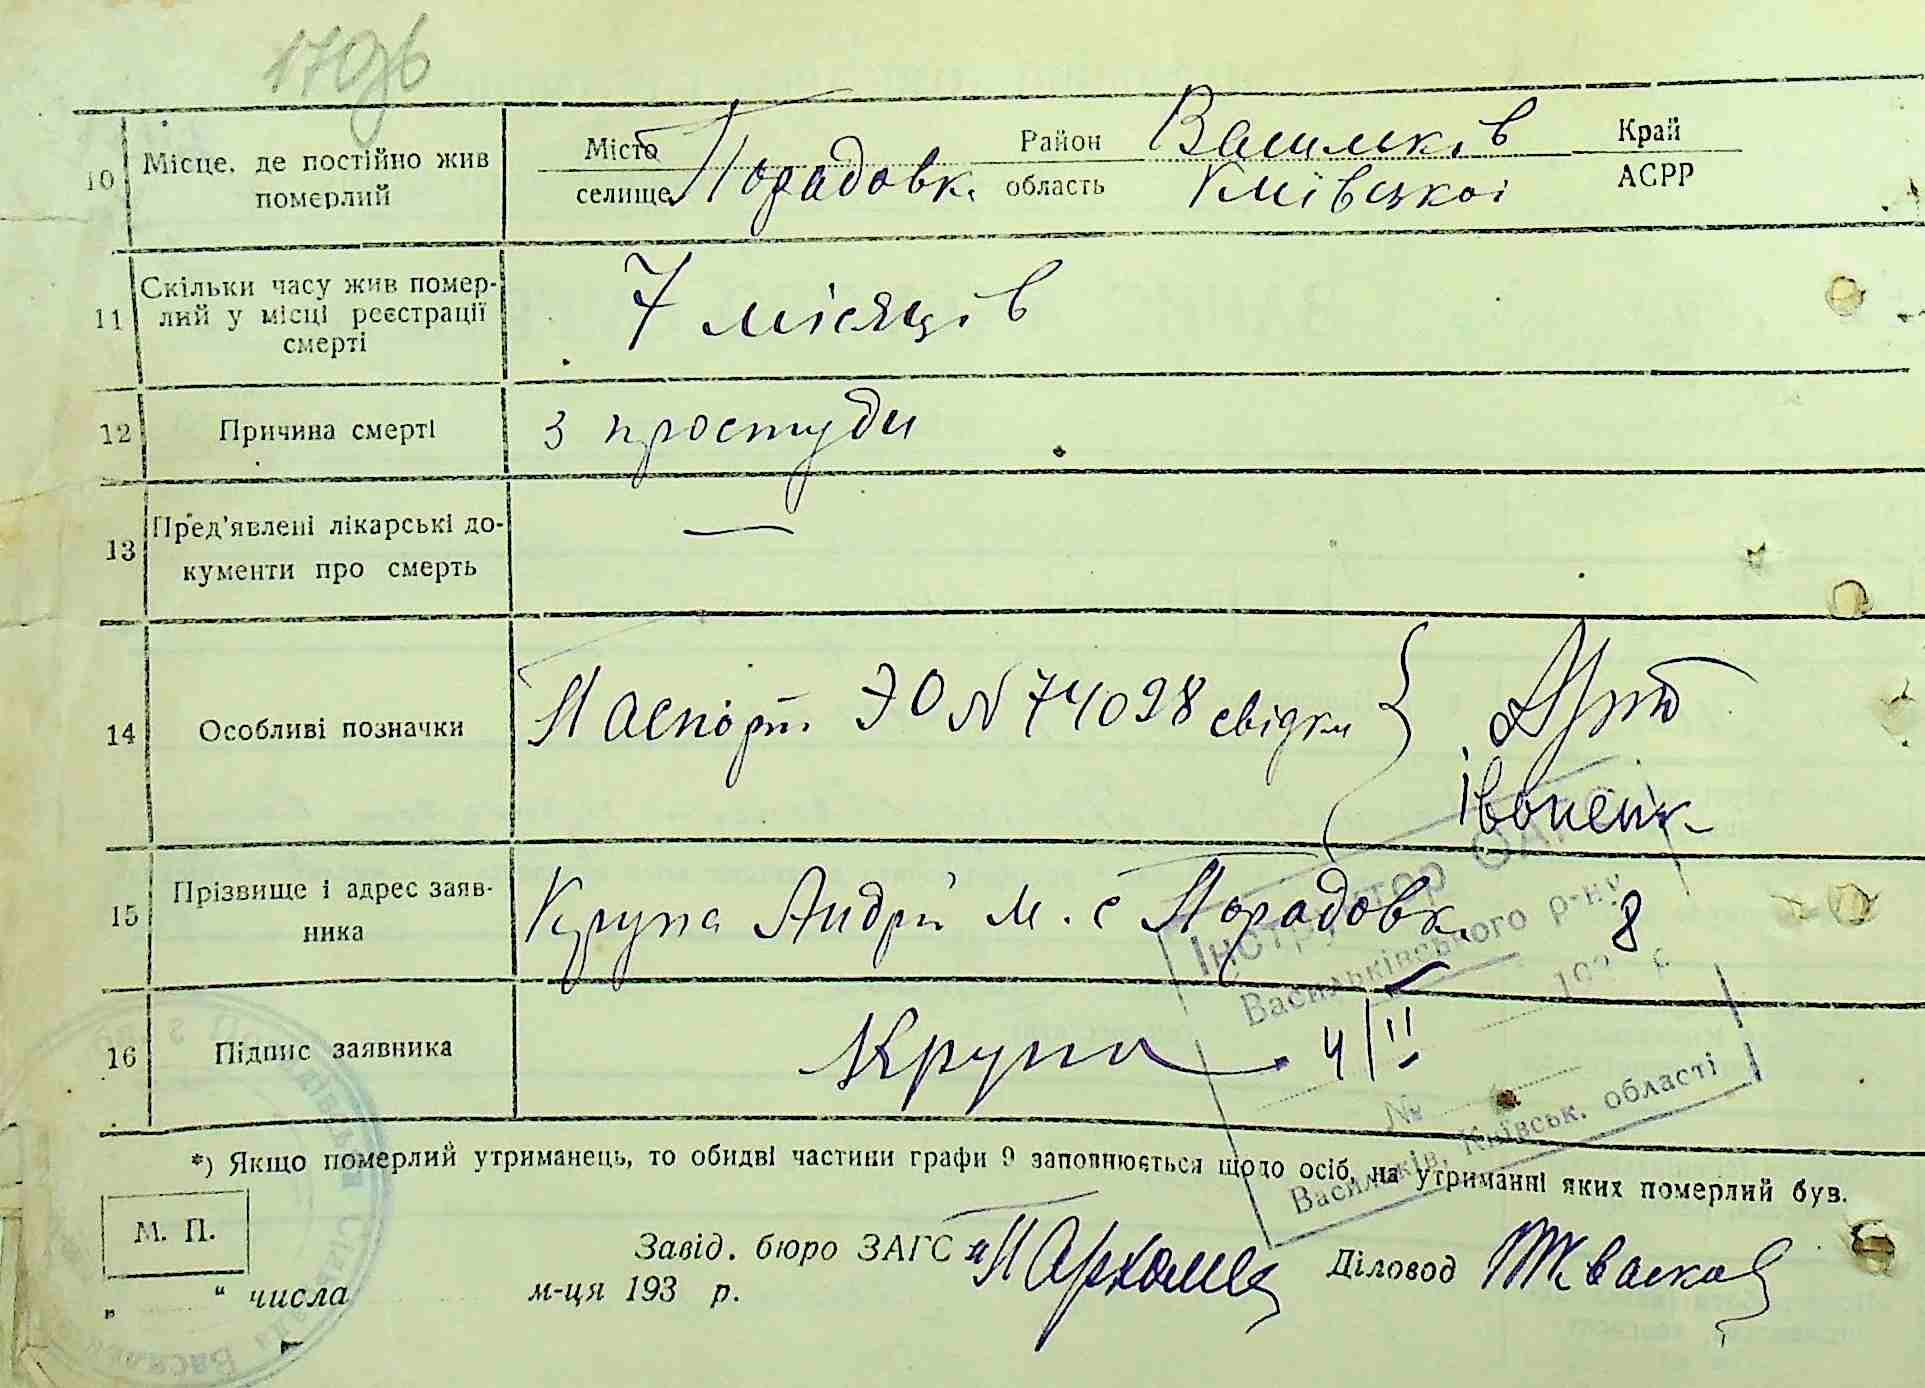 10 Місце, де постійно жив померлий
Місто селище Порадовк. Район область Васильків Київської Край АСРР
11 Скільки часу жив помер-
лий у місці реєстрації
смерті
7 місяців
12 Причина смерті з простуди
13 Пред'явлені лікарські до-
кументи про смерть
—
14 Особливі позначки Паспорт ЭО № 74098 свідки
15 Прізвище і адрес заяв-
ника
Крупа Андрій М. с Порадовк. 8
Інструктор
Васильківського р-ну
16 Підпис заявника Крупа 4/II
№
Васильків, Київськ. області
*) Якщо померлий утриманець, то обидві частини графи 9 заповнюється щодо осіб, на утриманні яких померлий був.
М. П.
Завід. бюро ЗАГС Діловод
„ “ числа м-ця 193 р.